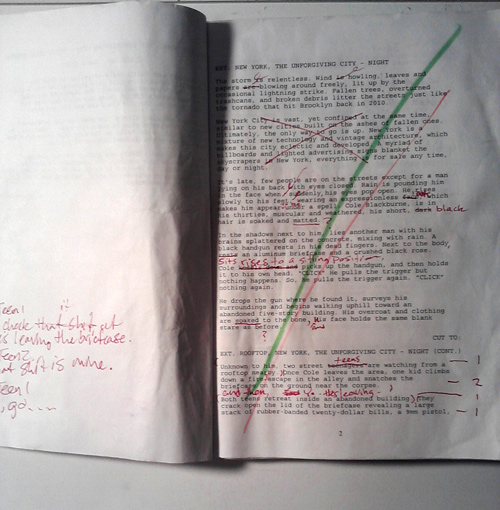 Teen1
check that shit yet
s leaving the briefcase.
Teen2
at shit is mine.
Teen1
, go....
EXT. NEW YORK, THE UNFORGIVING CITY - NIGHT
The storm is relentless. Wind is howling, leaves and
papers are blowing around freely, lit up by the
occasional lightning strike. Fallen trees, overturned
trashcans, and broken debris litter the streets just like
the tornado that hit Brooklyn back in 2010.
New York City is vast, yet confined at the same time,
similar to new cities built on the ashes of fallen ones.
Ultimately, the only way to go is up. New York is a
mixture of new technology and vintage architecture, which
makes this city eclectic and developed. A myriad of
billboards and lighted advertising signs blanket the
skyscrapers in New York, everything is for sale any time,
day or night.
It's late, few people are on the streets except for a man
lying on his back with eyes closed. Rain is pounding him
in the face when suddenly, his eyes pop open. He rises
slowly to his feet wearing an expressionless which
makes him appear under a spell. Cole Blackburne, is in
his thirties, muscular and weathered, his short, dark black
hair is soaked and matted.
In the shadows next to him lies another man with his
brains splattered on the concrete, mixing with rain. A
black handgun rests in his dead fingers. Next to the body,
rests an aluminum briefcase and a crushed black rose.
sits rises to a sitting position.
Cole up the handgun, and then holds
it to his own head. "CLICK" He pulls the trigger but
nothing happens. So, he pulls the trigger again. "CLICK"
nothing again.
He drops the gun where he found it, surveys his
surroundings and begins walking uphill toward an
abandoned five-story building. His overcoat and clothing
are soaked to the bone, his face holds the same blank
stare as before.
?
CUT TO:
EXT. ROOFTOP, NEW YORK, THE UNFORGIVING CITY - NIGHT (CONT.)
teens
Unknown to him, two street teenagers are watching from a
rooftop nearby. Once Cole leaves the area, one kid climbs
down a fire escape in the alley and snatches the
briefcase on the ground near the corpse.
Both teens retreat inside an abandoned building, they
crack open the lid of the briefcase revealing a large
stack of rubber-banded twenty-dollar bills, a 9mm pistol,
1
2
1
1
2